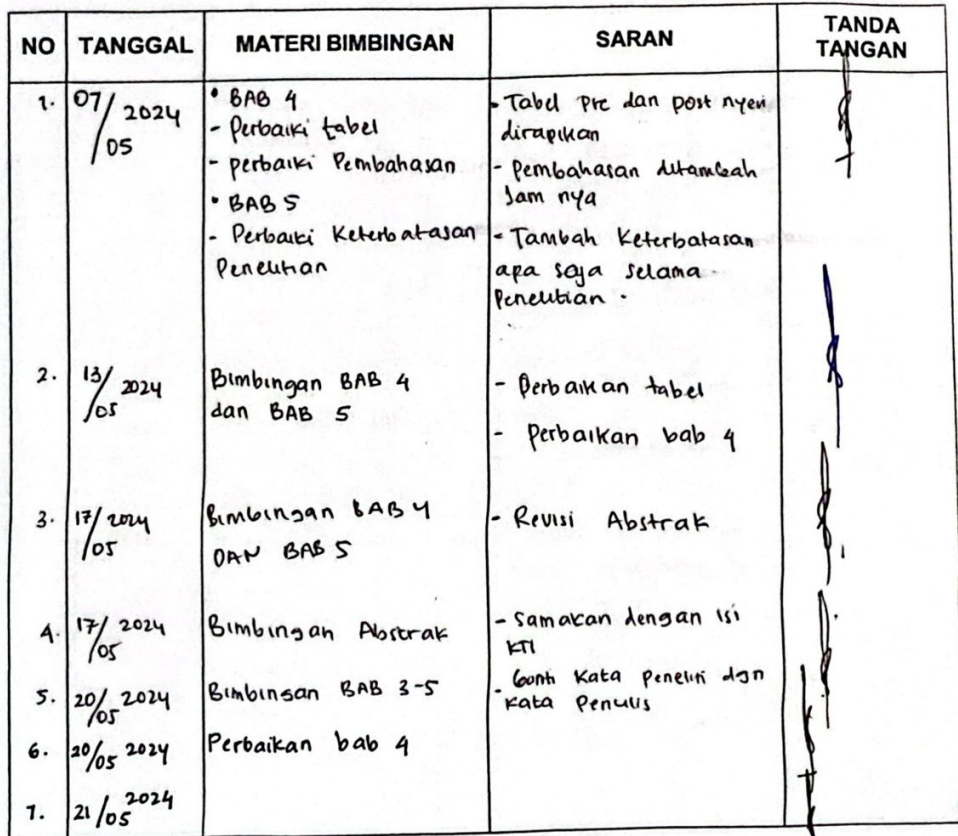 NO TANGGAL MATERI BIMBINGAN SARAN TANDA TANGAN
1. 07/05 2024
• BAB 4
- Perbaiki tabel
- perbaiki Pembahasan
• BAB 5
- Perbaiki Keterbatasan
Penelitian
- Tabel Pre dan post nyeri
dirapikan
- pembahasan ditambah
Jam nya
- Tambah Keterbatasan
apa saja selama
Penelitian.
2. 13/05 2024
Bimbingan BAB 4
dan BAB 5
- Perbaikan tabel
- Perbaikan bab 4
3. 17/05 2024
Bimbingan BAB 4
DAN BAB 5
- Revisi Abstrak
4. 17/05 2024
Bimbingan Abstrak
- Samakan dengan isi
KTI
5. 20/05 2024
Bimbingan BAB 3-5
- Ganti Kata Peneliti dgn
Kata Penulis
6. 20/05 2024
Perbaikan bab 4
7. 21/05 2024